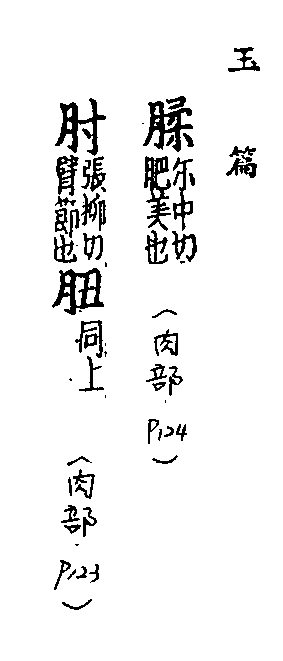 玉篇
腬尔中切肥美也（肉部P.124）
肘張柳切臂節也䏔同上（肉部P.123）